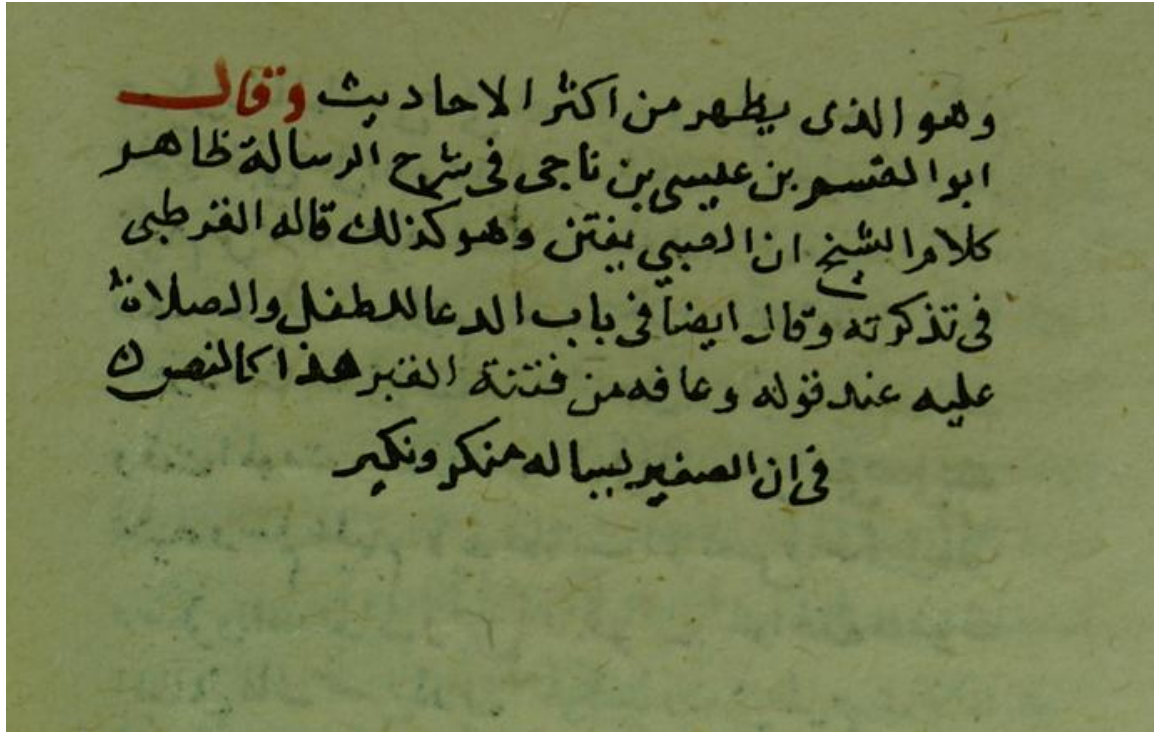 وهو الذى يظهر من اكثر الاحاديث وقال
ابو القسم بن عيسى بن ناجى فى شرح الرسالة ظاهر
كلام الشيخ ان الصبي يفتن وهو كذلك قاله القرطبى
فى تذكرته وقال ايضا فى باب الدعا للطفل والصلاة
عليه عند قوله وعافه من فتنة القبر هذا كالنص
فى ان الصغير يساله منكر ونكير